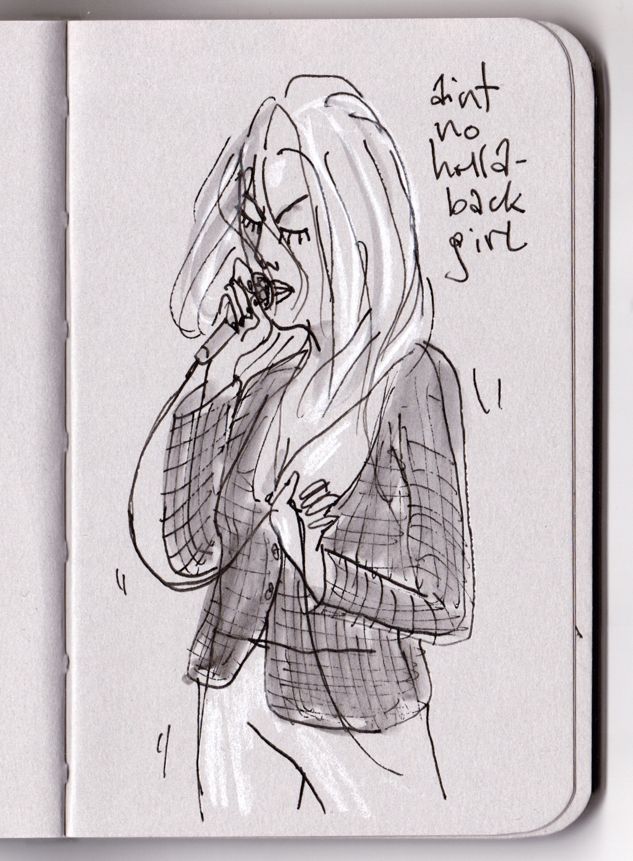 aint
no
holla-
back
girl